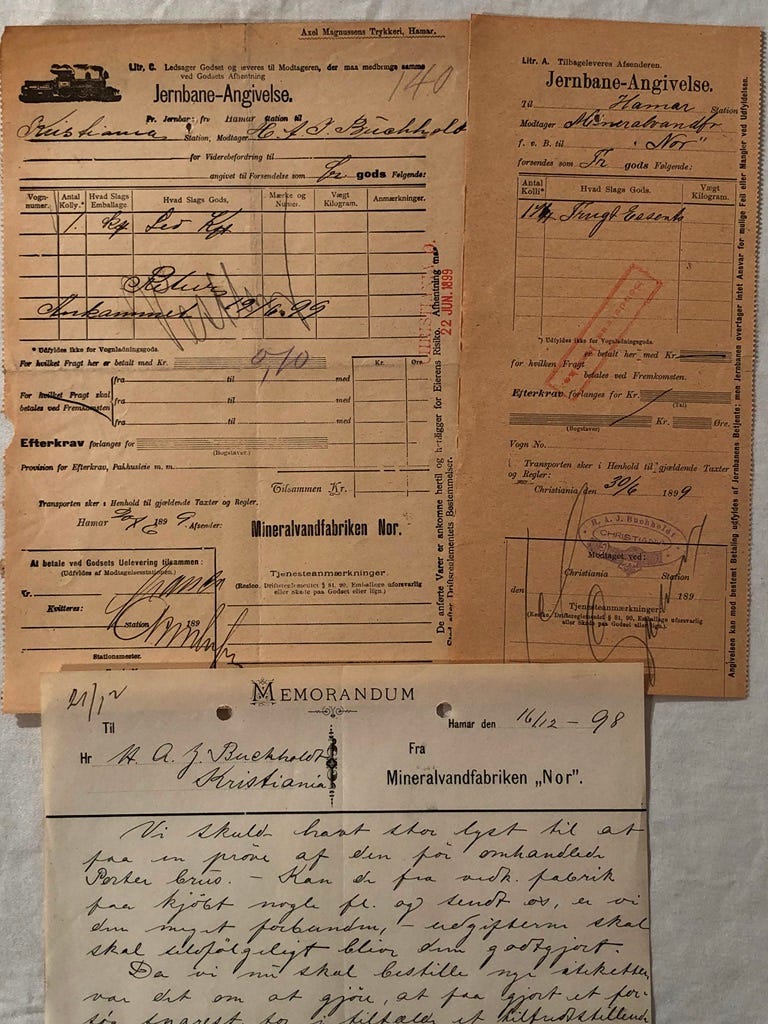 Axel Magnussens Trykkeri, Hamar.
Litr. C. Ledsager Godset og leveres til Modtageren, der maa medbringe samme
ved Godsets Afhentning
140
Jernbane-Angivelse.
Pr. Jernbane fra Hamar station til
Kristiania Station, Modtager H. A. J. Buchholdt
for Viderebefordring til
angivet til Forsendelse som gods Følgende:
Vogn-numer. Antal Kolly.* Hvad Slags Emballage. Hvad Slags Gods, Mærke og Numer. Vægt Kilogram. Anmærkninger.
1.
Retur
Ankommet 19/6 99
* Udfyldes ikke for Vognladningsgods.
For hvilket Fragt her er betalt med Kr. 0,10
Kr. Øre.
For hvilket Fragt skal betales ved Fremkomsten
fra til med
fra til med
fra til med
Efterkrav forlanges for
(Bogstaver.)
Provision for Efterkrav, Pakhusleie m. m.
Tilsammen Kr.
Transporten sker i Henhold til gjældende Taxter og Regler.
Hamar 189 9. Afsender: Mineralvandfabriken Nor.
At betale ved Godsets Uelevering tilsammen:
(Udfyldes af Modtagelsesstationen.)
Kr.
Kvitteres:
station 189
Stationsmester.
Tjenesteanmærkninger.
(Reglem. Driftsreglementet § 81, 90, Emballage uforsvarlig
eller Skade paa Godset eller lign.).
De anførte Varer er ankomne hertil og henligger for Eierens Risiko. Afhentning maa
Ske efter Driftsreglementets Bestemmelser.
CHRISTIANIA Ø.
22 JUN. 1899
Litr. A. Tilbageleveres Afsenderen.
Jernbane-Angivelse.
Til Hamar Station
Modtager Mineralvandfbr
f. v. B. til "Nor"
forsendes som gods Følgende:
Antal Kolli* Hvad Slags Gods. Vægt Kilogram.
Frugt Essents
*) Udfyldes ikke for Vognladningsgods.
for hvilken Fragt er betalt her med Kr.
betales ved Fremkomsten.
Efterkrav forlanges for Kr.
(Tal)
Kr. Øre.
(Bogstaver)
Vogn No.
Transporten sker i Henhold til gjældende Taxter
og Regler:
Christiania 30/6 1899
H. A. J. Buchholdt
CHRISTIANIA
Modtaget ved:
Christiania Station
den 189
Tjenesteanmærkninger.
(Reglem. Driftsreglementet § 81, 90, Emballage uforsvarlig
eller Skade paa Godset eller lign.)
Angivelsen kan mod bestemt Betaling udfyldes af Jernbanens Betjente; men Jernbanen overtager intet Ansvar for mulige Feil eller Mangler ved Udfyldelsen.
21/12
MEMORANDUM
Til
Hamar den 16/12 - 98
Hr H. A. J. Buchholdt
Kristiania
Fra
Mineralvandfabriken „Nor".
Vi skulde havt stor lyst til at
faa en prøve af den før omhandlede
Porter Crus. - Kan De fra vedk. fabrik
faa kjøbt nogle fl. og sendt os, er vi
Dem meget forbunden, - udgifterne skal
skal selvfølgeligt blive Dem godtgjort.
Da vi nu skal bestille nye etiketter,
var det om at gjøre, at faa gjort et for-
søg snarest for i tilfælde et tilfredsstillende